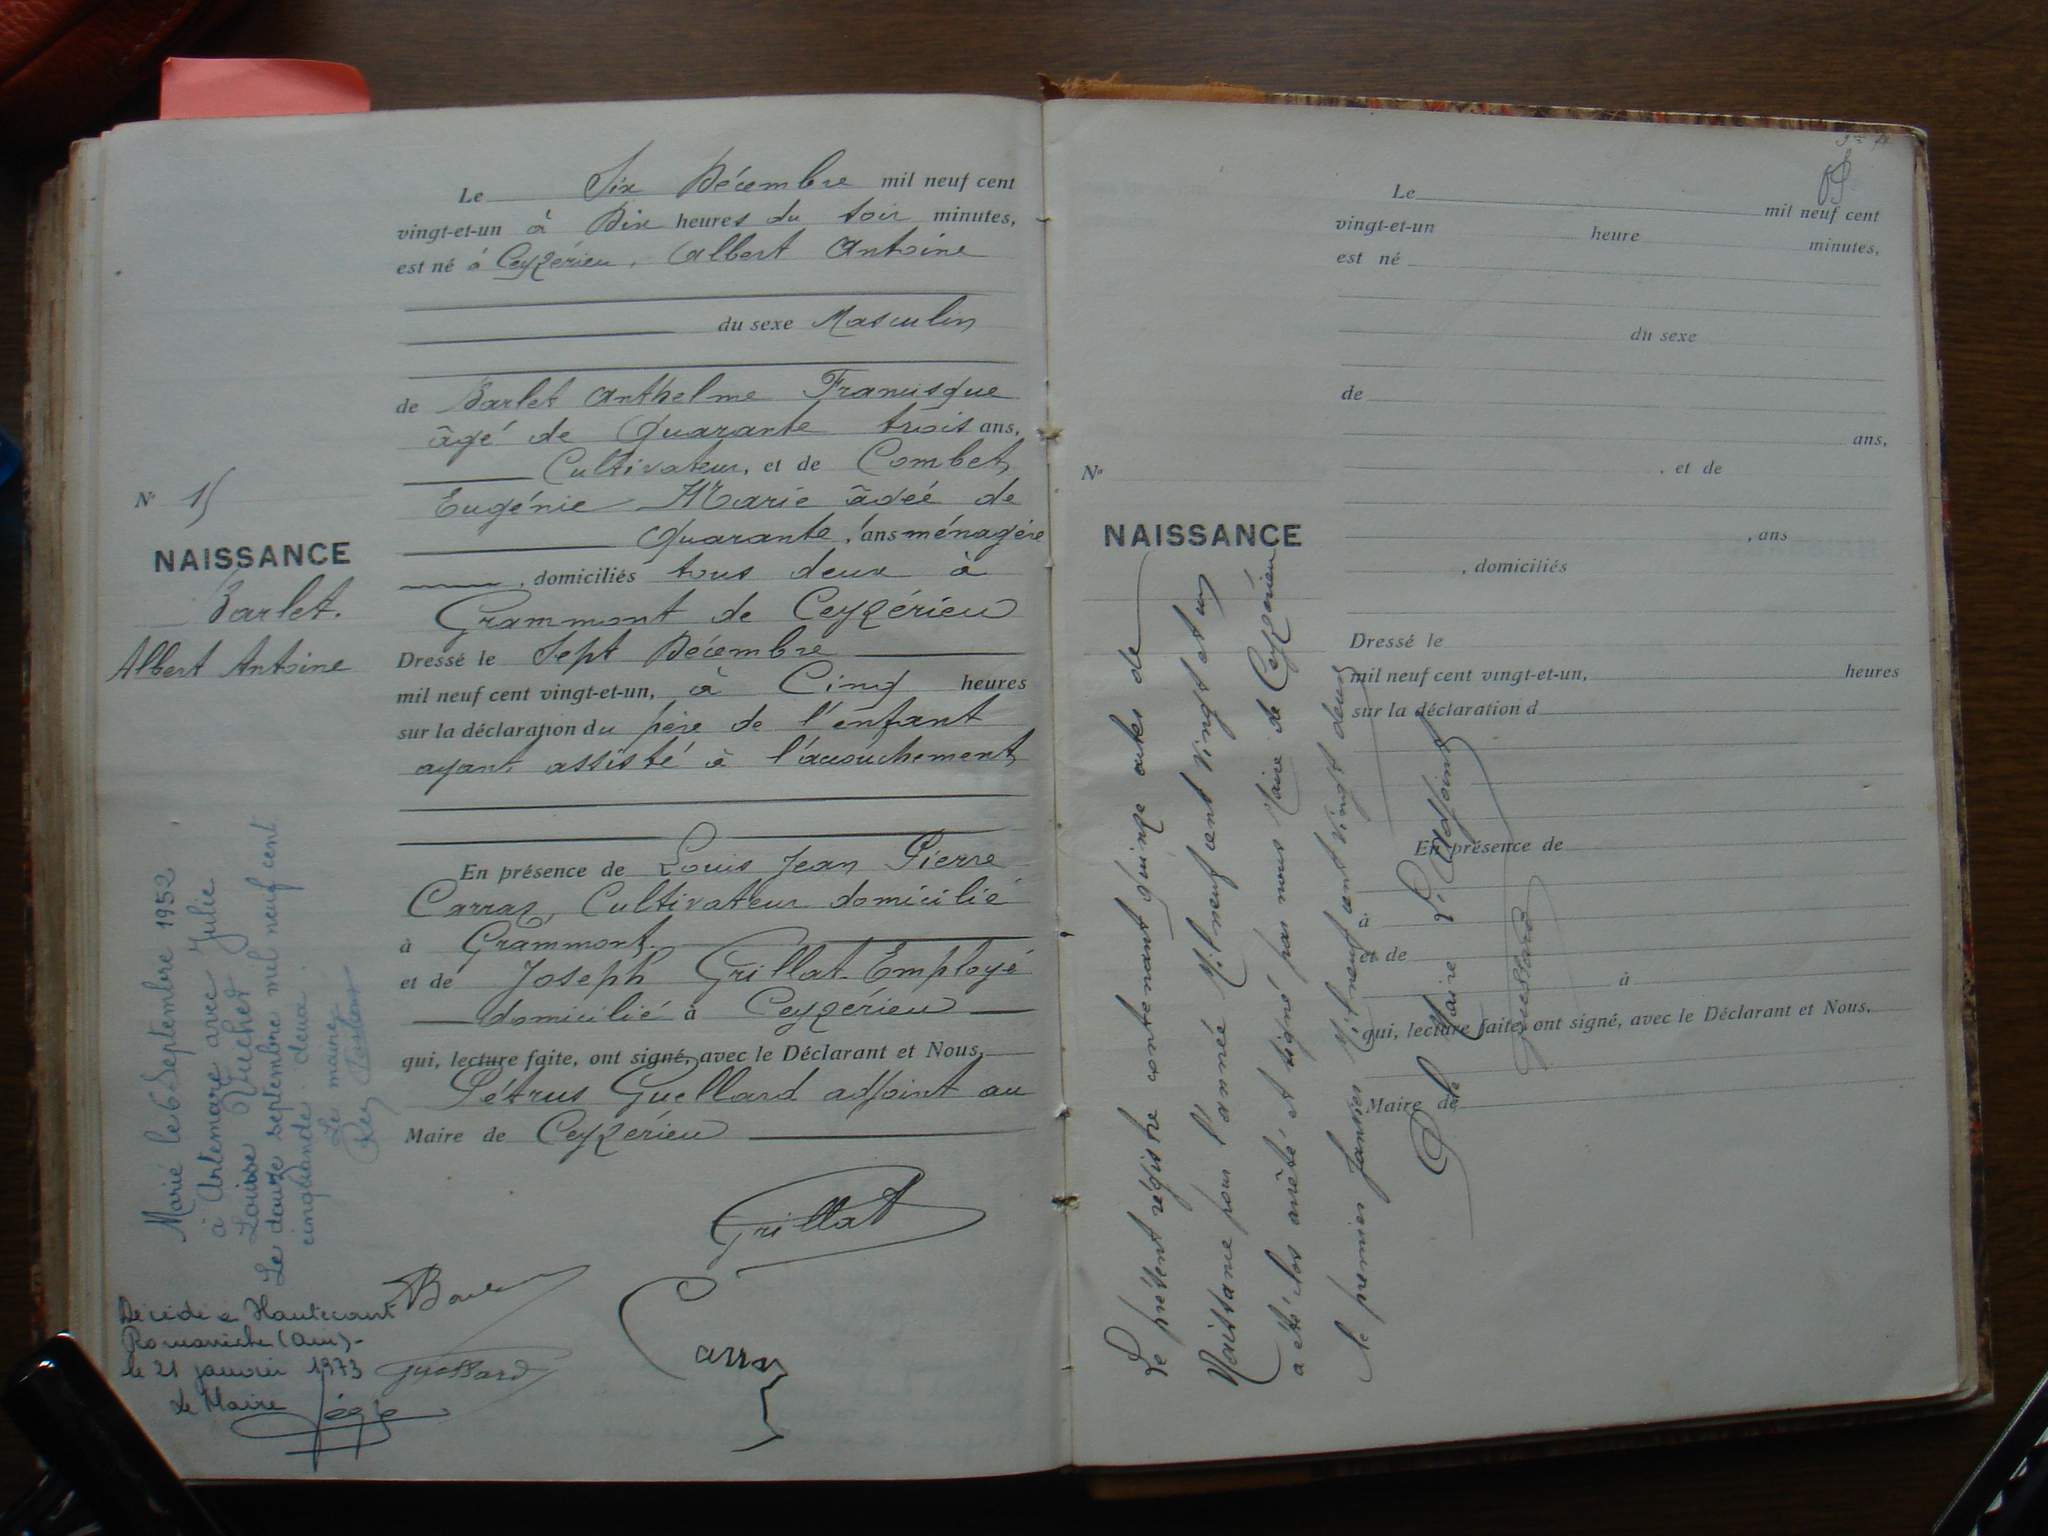 Le Six Décembre mil neuf cent
vingt-et-un à Dix heures du soir minutes,
est né à Ceyzérieu, Albert Antoine
du sexe Masculin
de Barlet Anthelme Francisque
âgé de Quarante trois ans,
Cultivateur, et de Combet
Eugénie Marie âgée de
Quarante, ans ménagère
, domiciliés tous deux à
Grammont de Ceyzérieu
Dressé le Sept Décembre
mil neuf cent vingt-et-un, à Cinq heures
sur la déclaration du père de l'enfant
ayant assisté à l'accouchement
En présence de Louis Jean Pierre
Carraz, Cultivateur domicilié
à Grammont.
et de Joseph Grillat Employé
domicilié à Ceyzérieu
qui, lecture faite, ont signé, avec le Déclarant et Nous,
Pétrus Guellard adjoint au
Maire de Ceyzérieu
Grillat
Carraz
Guellard
N° 15
NAISSANCE
Barlet.
Albert Antoine
Marié le 6 Septembre 1952
à Artemare avec Julie
Louise
Le douze septembre mil neuf cent
cinquante deux.
Le maire,
Décédé à Hautecourt
Romanèche (Ain) -
le 21 janvier 1973
Le Maire
Le mil neuf cent
vingt-et-un heure minutes,
est né
du sexe
de
ans,
, et de
N°
NAISSANCE
, ans
, domiciliés
Dressé le
mil neuf cent vingt-et-un, heures
sur la déclaration d
En présence de
à
et de
à
qui, lecture faite, ont signé, avec le Déclarant et Nous,
Maire de
Le présent registre contenant quinze actes de
Naissance pour l'année Mil neuf cent vingt et un
a été clos arrêté et signé par nous Maire de Ceyzérieu
le premier Janvier Mil neuf cent vingt deux
P. le Maire L'Adjoint
Guellard